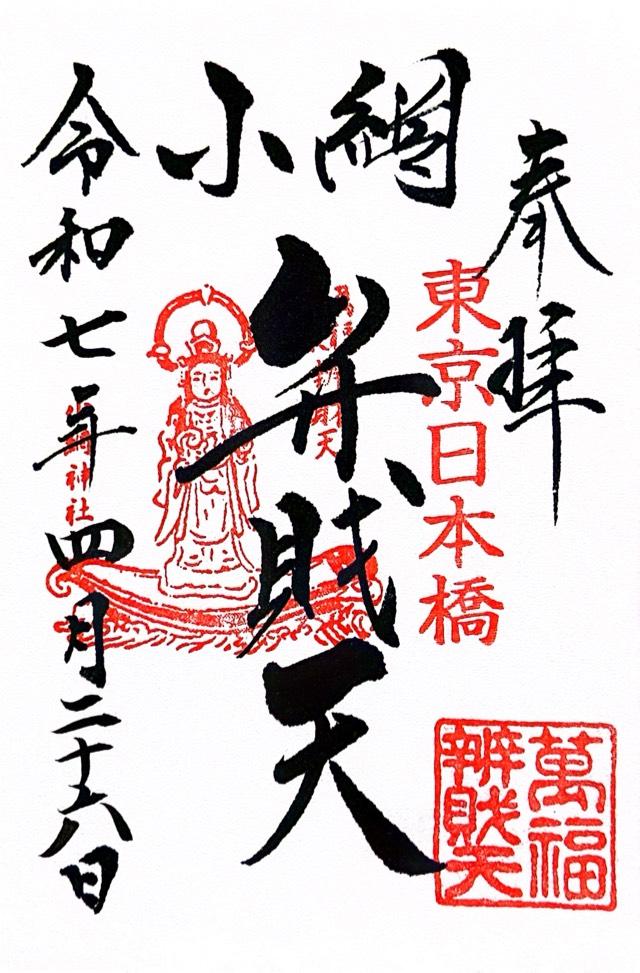 奉拝
東京日本橋
小網
弁財天
令和七年四月二十六日
小網神社
萬福
辨財天